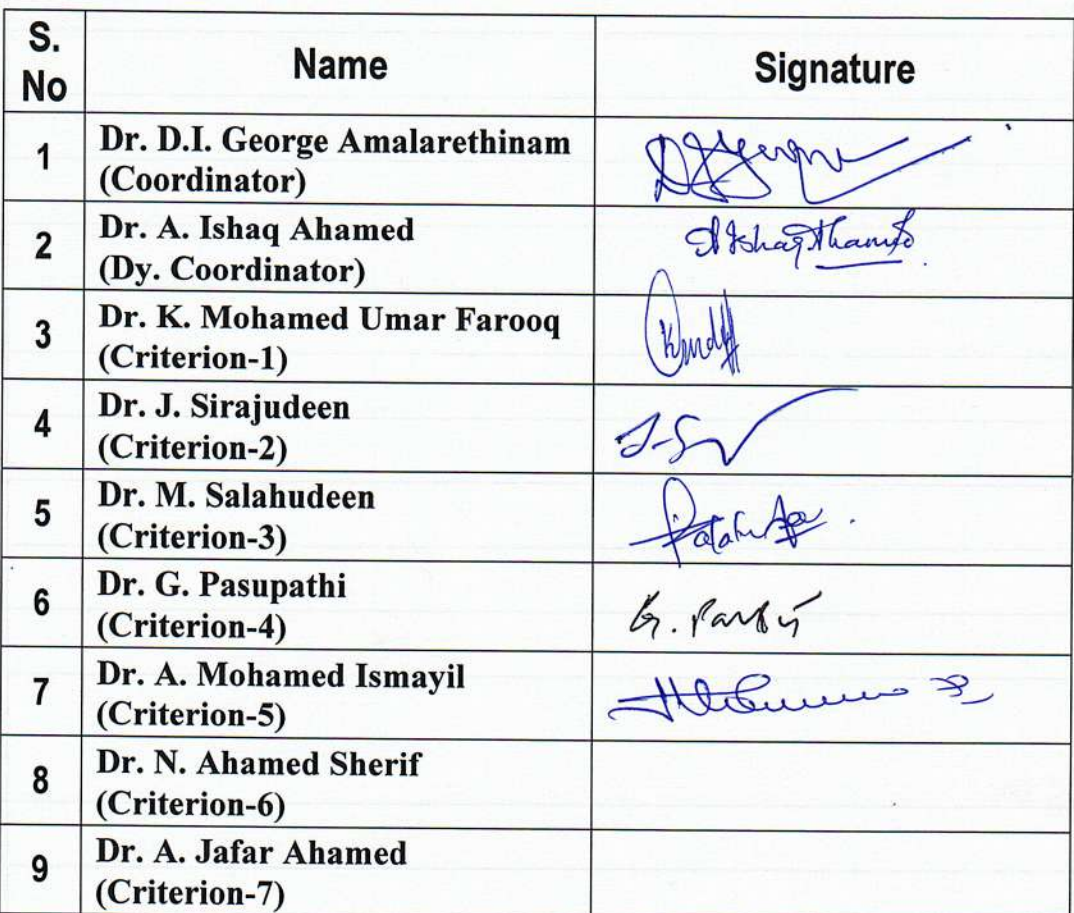 S.
No
Name
Signature
1
Dr. D.I. George Amalarethinam
(Coordinator)
2
Dr. A. Ishaq Ahamed
(Dy. Coordinator)
A Ishaq Ahamed
3
Dr. K. Mohamed Umar Farooq
(Criterion-1)
4
Dr. J. Sirajudeen
(Criterion-2)
5
Dr. M. Salahudeen
(Criterion-3)
6
Dr. G. Pasupathi
(Criterion-4)
7
Dr. A. Mohamed Ismayil
(Criterion-5)
8
Dr. N. Ahamed Sherif
(Criterion-6)
9
Dr. A. Jafar Ahamed
(Criterion-7)